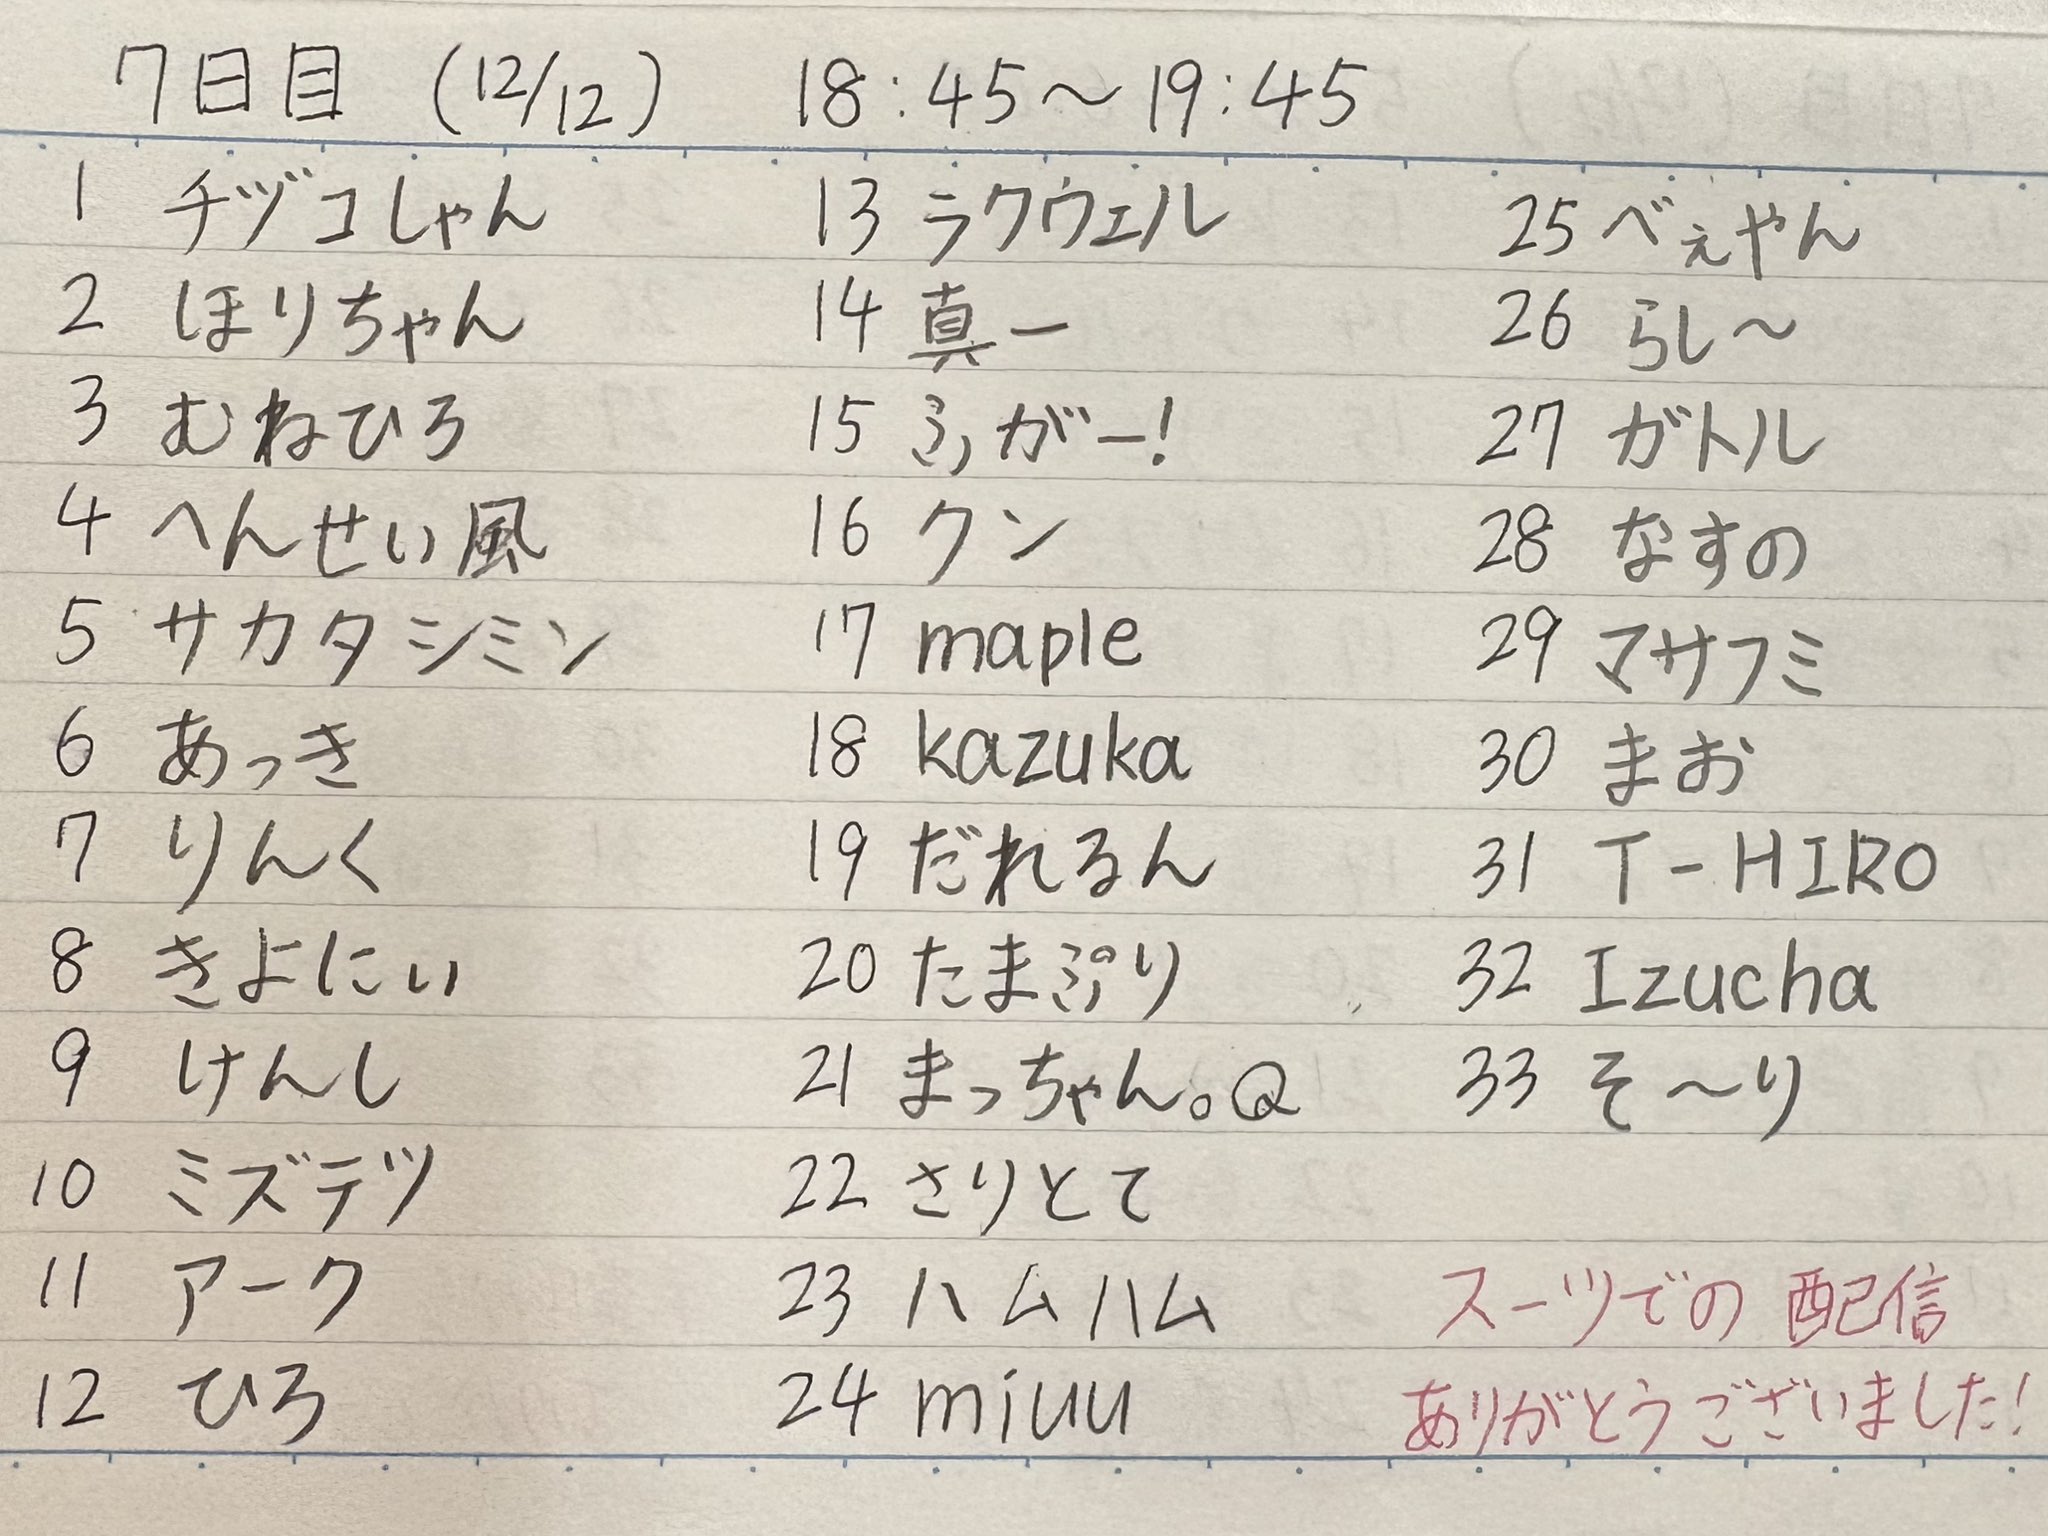 7日目 (12/12) 18:45〜19:45
1 チヅコしゃん
2 ほりちゃん
3 むねひろ
4 へんせい風
5 サカタシミン
6 あっき
7 りんく
8 きよにぃ
9 けんし
10 ミズテツ
11 アーク
12 ひろ
13 ラクウェル
14 真一
15 ふがー!
16 クン
17 maple
18 kazuka
19 だれるん
20 たまぷり
21 まっちゃん。Q
22 さりとて
23 ハムハム
24 miuu
25 べぇやん
26 らし〜
27 ガトル
28 なすの
29 マサフミ
30 まお
31 T-HIRO
32 Izucha
33 そ〜り
スーツでの配信
ありがとうございました!